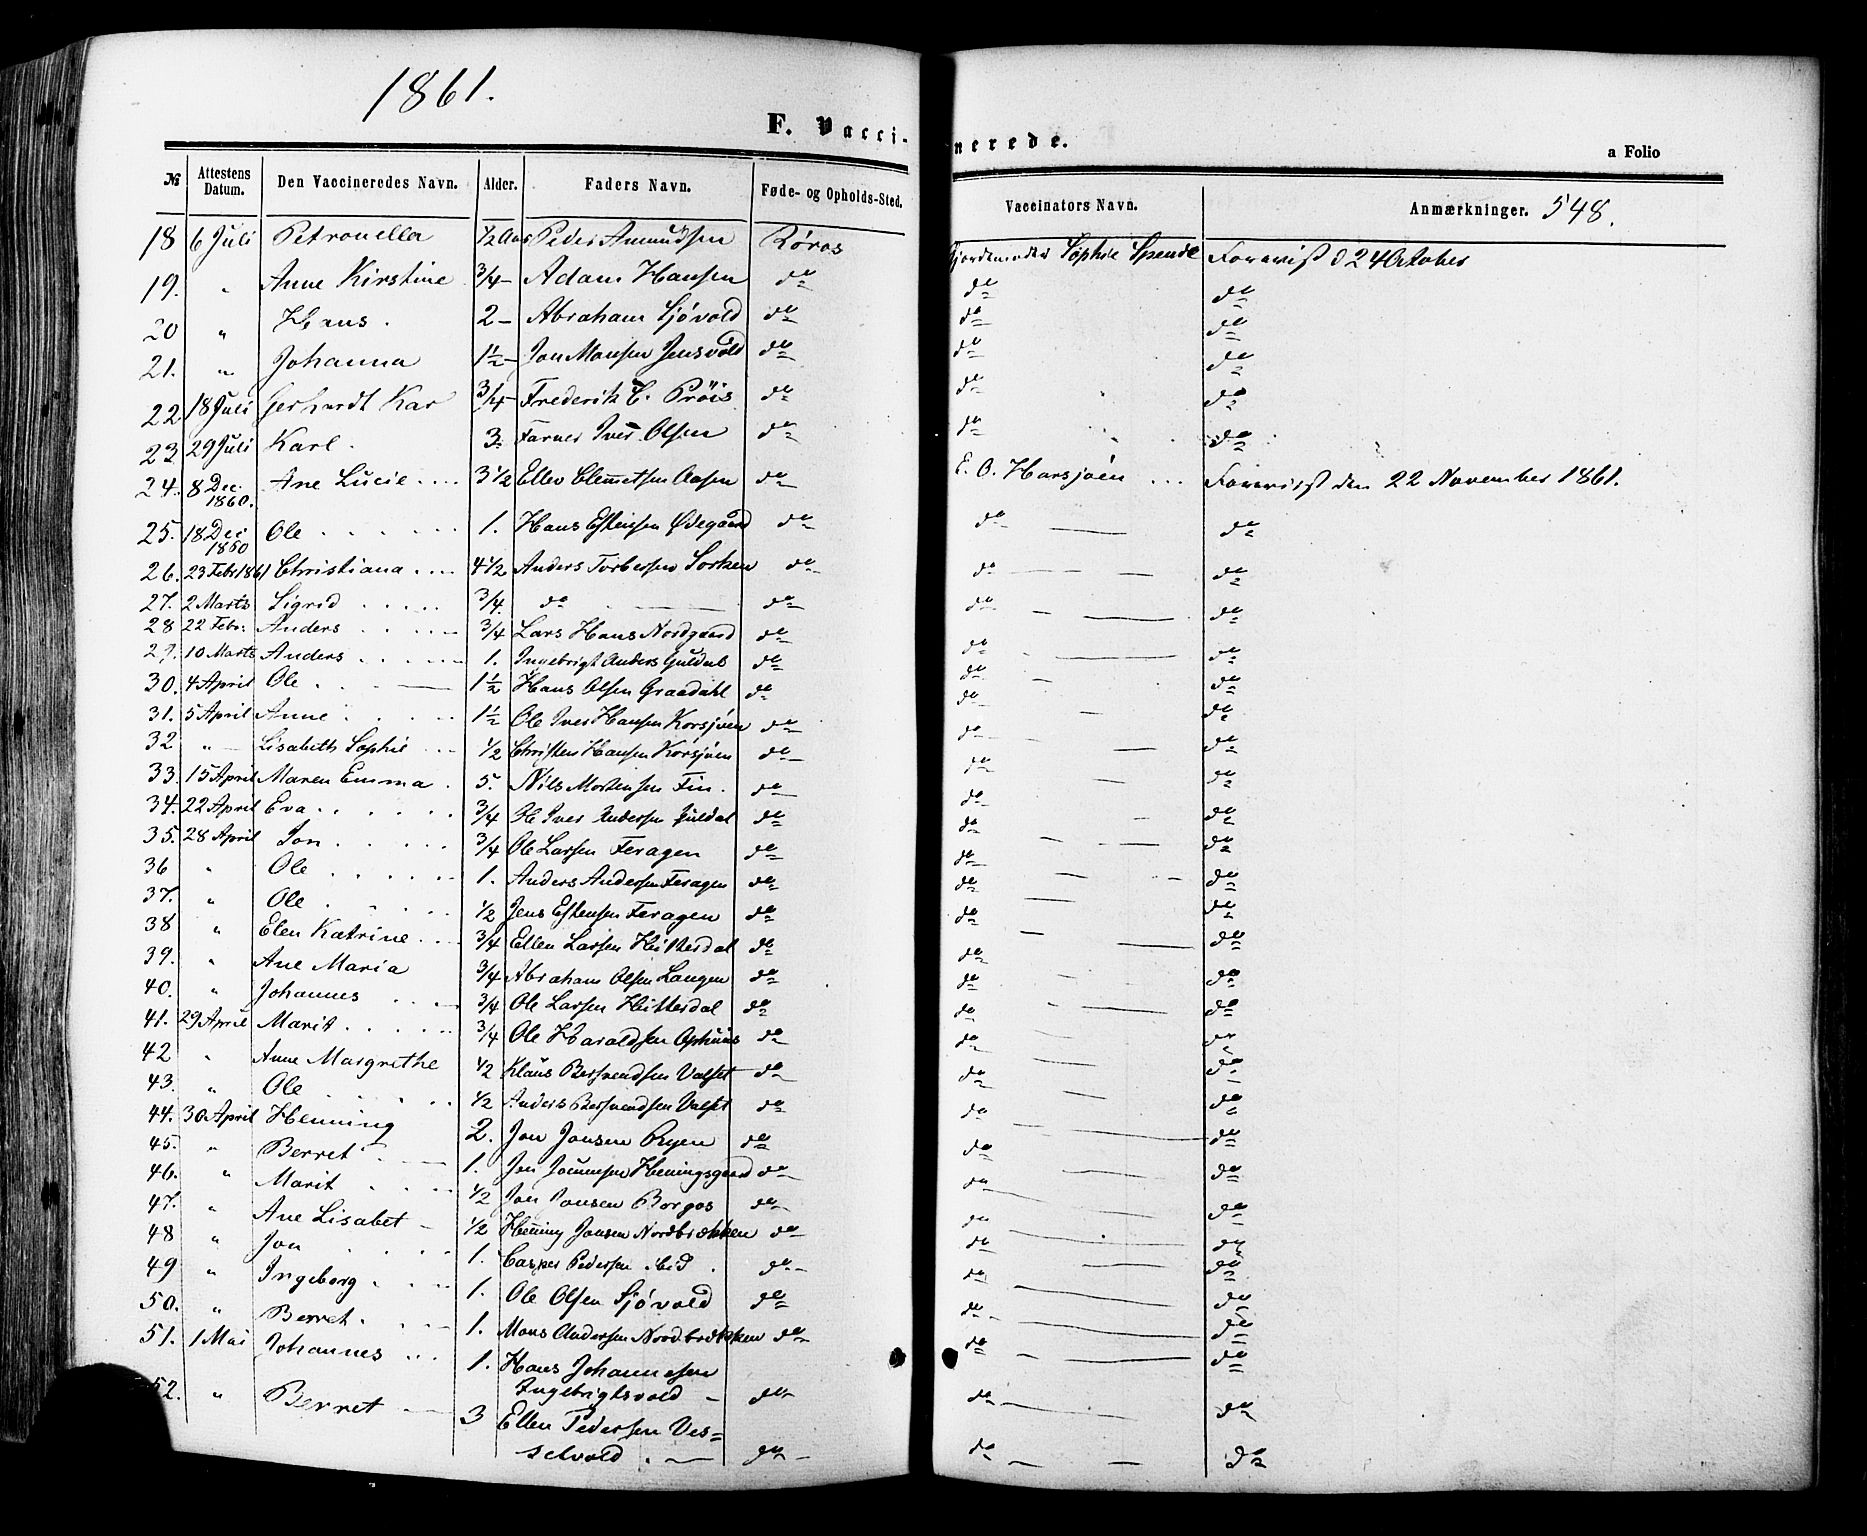 1861.
F. Vaccinerede.
a Folio
№ Attestens Datum. Den Vaccineredes Navn. Alder. Faders Navn. Føde- og Opholds-Sted. Vaccinators Navn. Anmærkninger. 548.
18 6 Juli Petronella 1/2 Aar Peder Amundsen Røros Gjordemoder Sophie Spende Forevist d 24 October
19. " Anne Kirstine 3/4 – Adam Hansen do do do
20 " Hans. 2 – Abraham Sjövold do do do
21. " Johanna 1 1/2 – Jon Monsen Jensvold do do do
22 18 Juli Gerhardt Kar 3/4 – Frederik C. Pröis do do do
23 29 Juli Karl. 3. Farver Iver Olsen do do do
24. 8 Dec. 1860. Ane Lucie .... 3 1/2 Ellev Clemetsen Aasen do E. O. Korsjøen ... Forevist den 22 November 1861.
25. 18 Dec 1860 Ole 1. Hans Estensen Ødegaard do do do
26. 23 Febr 1861 Christiana .... 4 1/2 Anders Torbersen Sorken do do do
27. 2 Marts Sigrid 3/4. do do do do
28 22 Febr. Anders 3/4 Lars Hans Nordgaard do do do
29. 10 Marts Anders 1. Ingebrigt Anders Guldal do do do
30. 4 April Ole 1 1/2 Hans Olsen Graadahl do do do
31. 5 April Anne 1 1/2 Ole Iver Hansen Korsjöen do do do
32 " Lisabeth Sophie 1/2 Christen Hansen Korsjöen do do do
33. 15 April Maren Emma . 5. Nils Mortensen Fin. do do do
34. 22 April Eva 3/4 Ole Iver Andersen Guldal do do do
35. 28 April Jon 3/4 Ole Larsen Feragen do do do
36 " Ole 1. Anders Andersen Feragen do do do
37. " Ole 1/2 Jens Estensen Feragen do do do
38 " Elen Katrine 3/4 Ellen Larsen Hitterdal do do do
39. " Ane Maria 3/4 Abraham Olsen Langen do do do
40. " Johannes 3/4 Ole Larsen Hitterdal do do do
41. 29 April Marit 3/4 Ole Haraldsen Ophuus do do do
42 " Anne Margrethe 1/2 Klaus Bersvendsen Valset do do do
43. " Ole 1/2 Anders Bersvendsen Valset do do do
44. 30 April Henning 2. Jon Jonsen Ryen do do do
45. " Berret 1. Jon Henningsgaard do do do
46. " Marit 1/2 Jon Jonsen Borgos do do do
47. " Ane Lisabet 1/2 Henning Jonsen Nordbrækken do do do
48 " Jon 1. Casper Pedersen ibid. do do do
49 " Ingeborg 1. Ole Olsen Sjövold do do do
50. " Berret. 1. Mons Andersen Nordbrækken do do do
51. 1 Mai Johannes 1. Hans Johannesen
Ingebrigtsvold do do do
52. " Berret 3 Ellen Pedersen Ves=
selvold. do do do